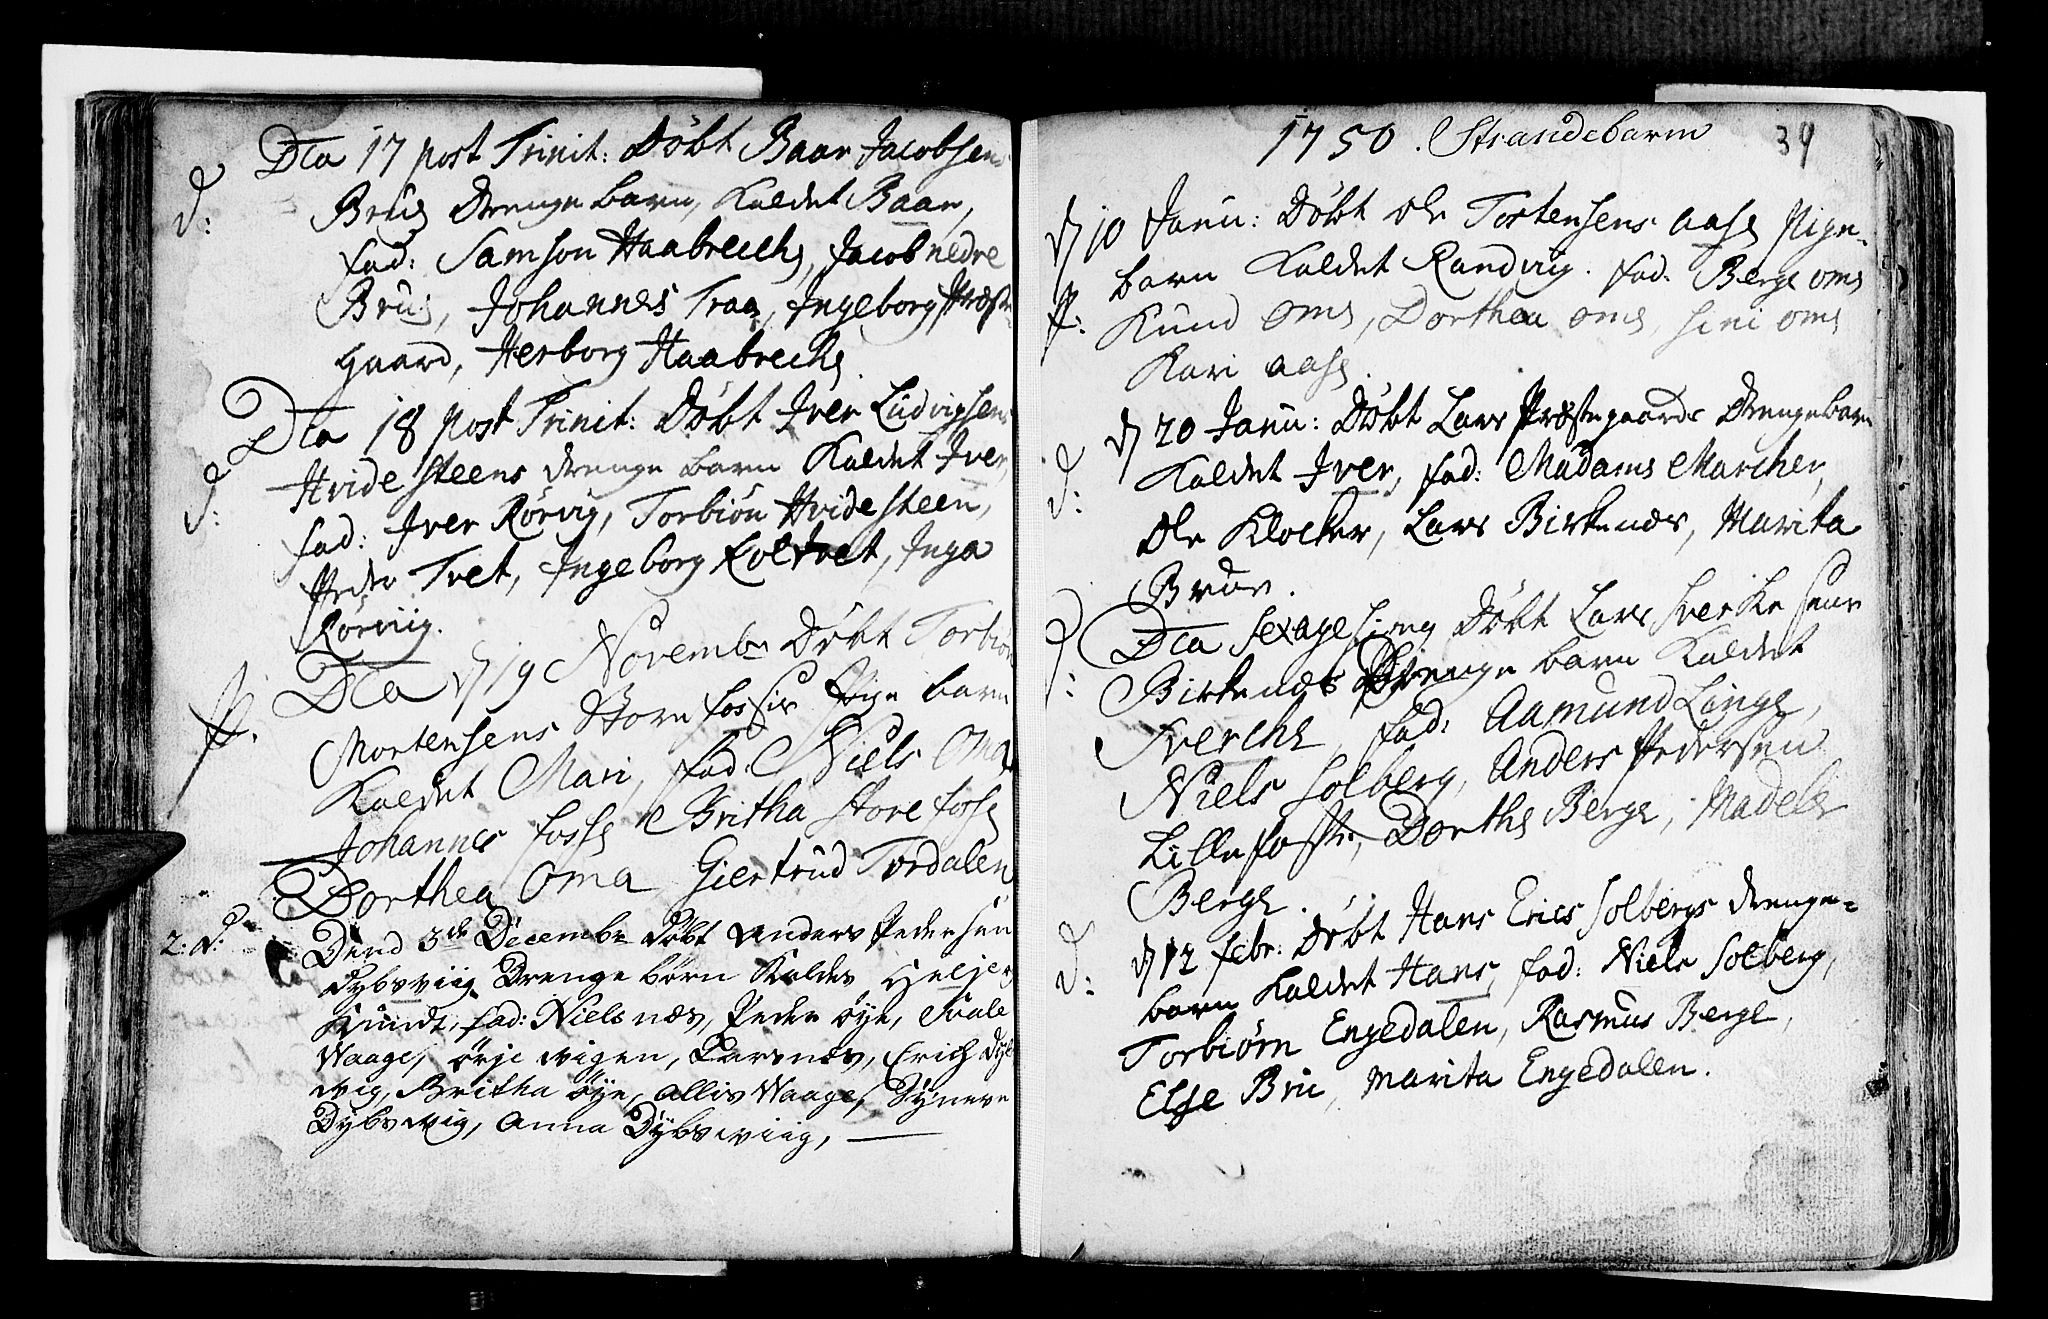 Dca 17 post Trinit: Døbt Baar Jacobsens
d: Brues Drenge barn, Kaldet Baar,
fad: Samson Haabrechs, Jacob nedre
Brues, Johannes Traa, Ingeborg Præste
gaard, Herborg Haabrechs.
Dca 18 post Trinit: Døbt Iver Ludvigsens
d: Hvidesteens drenge barn Kaldet Iver,
fad: Iver Rørvig, Torbiøn Hvidesteen,
Peder Tvet, Ingeborg Koltvet, Inga
Rørviig.
Dca d 19 Novembr Døbt Torbiøn
P. Mortensens Store fosses Pige barn
Kaldet Mari, fad: Niels Oma,
Johannes fosse Britha Store fosse
Dorthea Oma Giertrud Tordalen
2: d: Dend 3de Decembr Døbt Anders Pedersen
Dybsviig Drenge børn Kaldes Helje og
Kundt, fad: Niels næs, Peder øye,
Waage, ørje wigen, Lars næs, Erich Dybs
wig, Britha øye, Allis Waage, Synneve
Dybswig, Anna Dybswiig,
1750. Strandebarm 39
d 10 Janu: Døbt Ole Tostensens aase Pige-
barn Kaldet Randvig. fad: Berge oms
P: Kund oms, Dorthea oms, Siri oms
Kari aase.
d 20 Janu: Døbt Lars Præstegaards Drengebarn
d: Kaldet Iver, fad: Madams Marcher,
Ole Klocker, Lars Birkenæs, Marita
Brue.
Dca Sexagesima Døbt Lars Sverkesens
d: Birkenæs Drenge barn Kaldet
Sverche, fad: Aamund Linge,
Niels Solberg, Anders Pedersen
Lillefosse, Dorthe Berge, Madele
Berge.
d: d 12 febr: Døbt Hans Erics Solbergs drenge-
barn Kaldet Hans, fad: Niels Solberg,
Torbiørn Engedalen, Rasmus Berge,
Else Bru, Marita Engedalen.